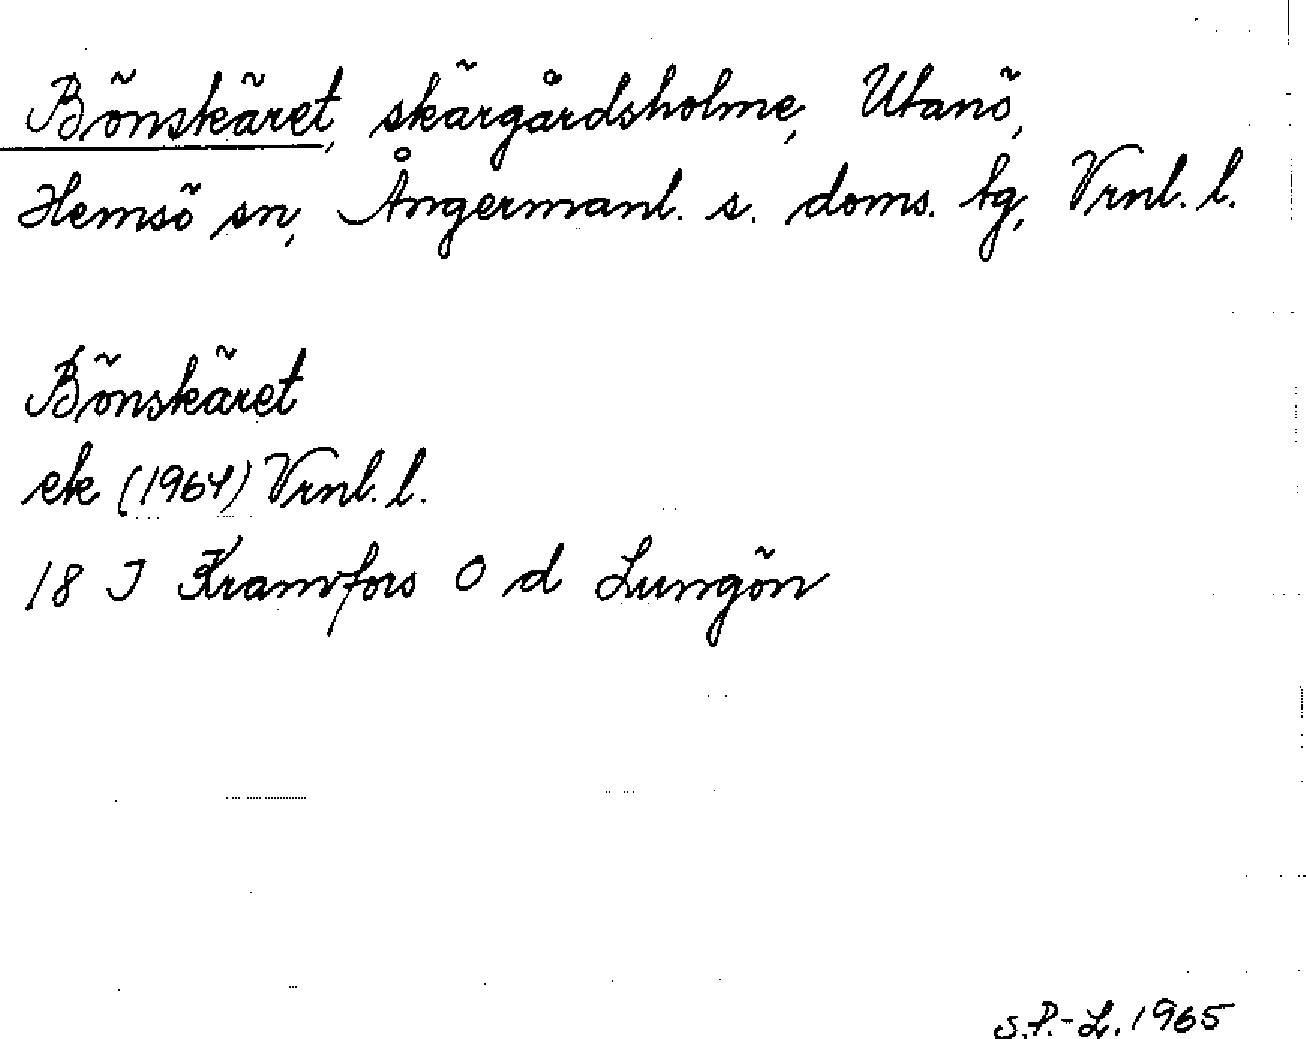 Bönskäret, skärgårdsholme, Utanö,
Hemsö sn, Ångermanl. s. doms. tg, Vrnl. l.
Bönskäret
ek (1964) Vrnl. l.
18 I Kramfors O d Lungön
S.P.-L. 1965